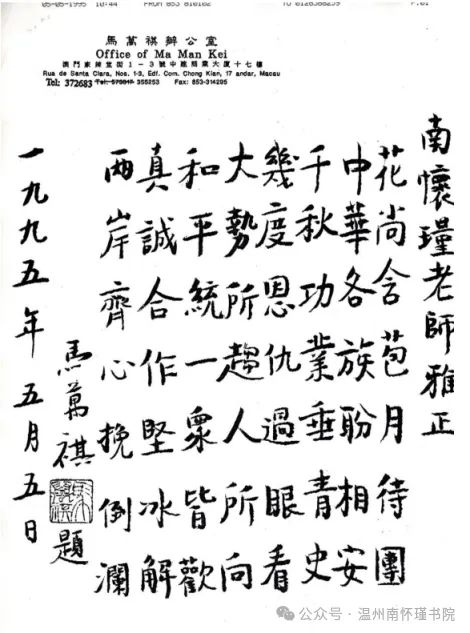 05-05-1995 10:44 FROM 853 810102 TO P.01
馬萬祺辦公室
Office of Ma Man Kei
澳門家辣堂街1－3號中建商業大廈十七樓
Rua de Santa Clara, Nos. 1-3, Edf. Com. Chong Kian, 17 andar, Macau
Tel: 372683 355253 Fax: 853-314205
南懷瑾老師雅正
花尚含苞月待團
中華各族盼相安
千秋功業垂青史
幾度恩仇過眼看
大勢所趨人所向
和平統一衆皆歡
真誠合作堅冰解
兩岸齊心挽倒瀾
馬萬祺題
一九九五年五月五日
公众号·温州南怀瑾书院